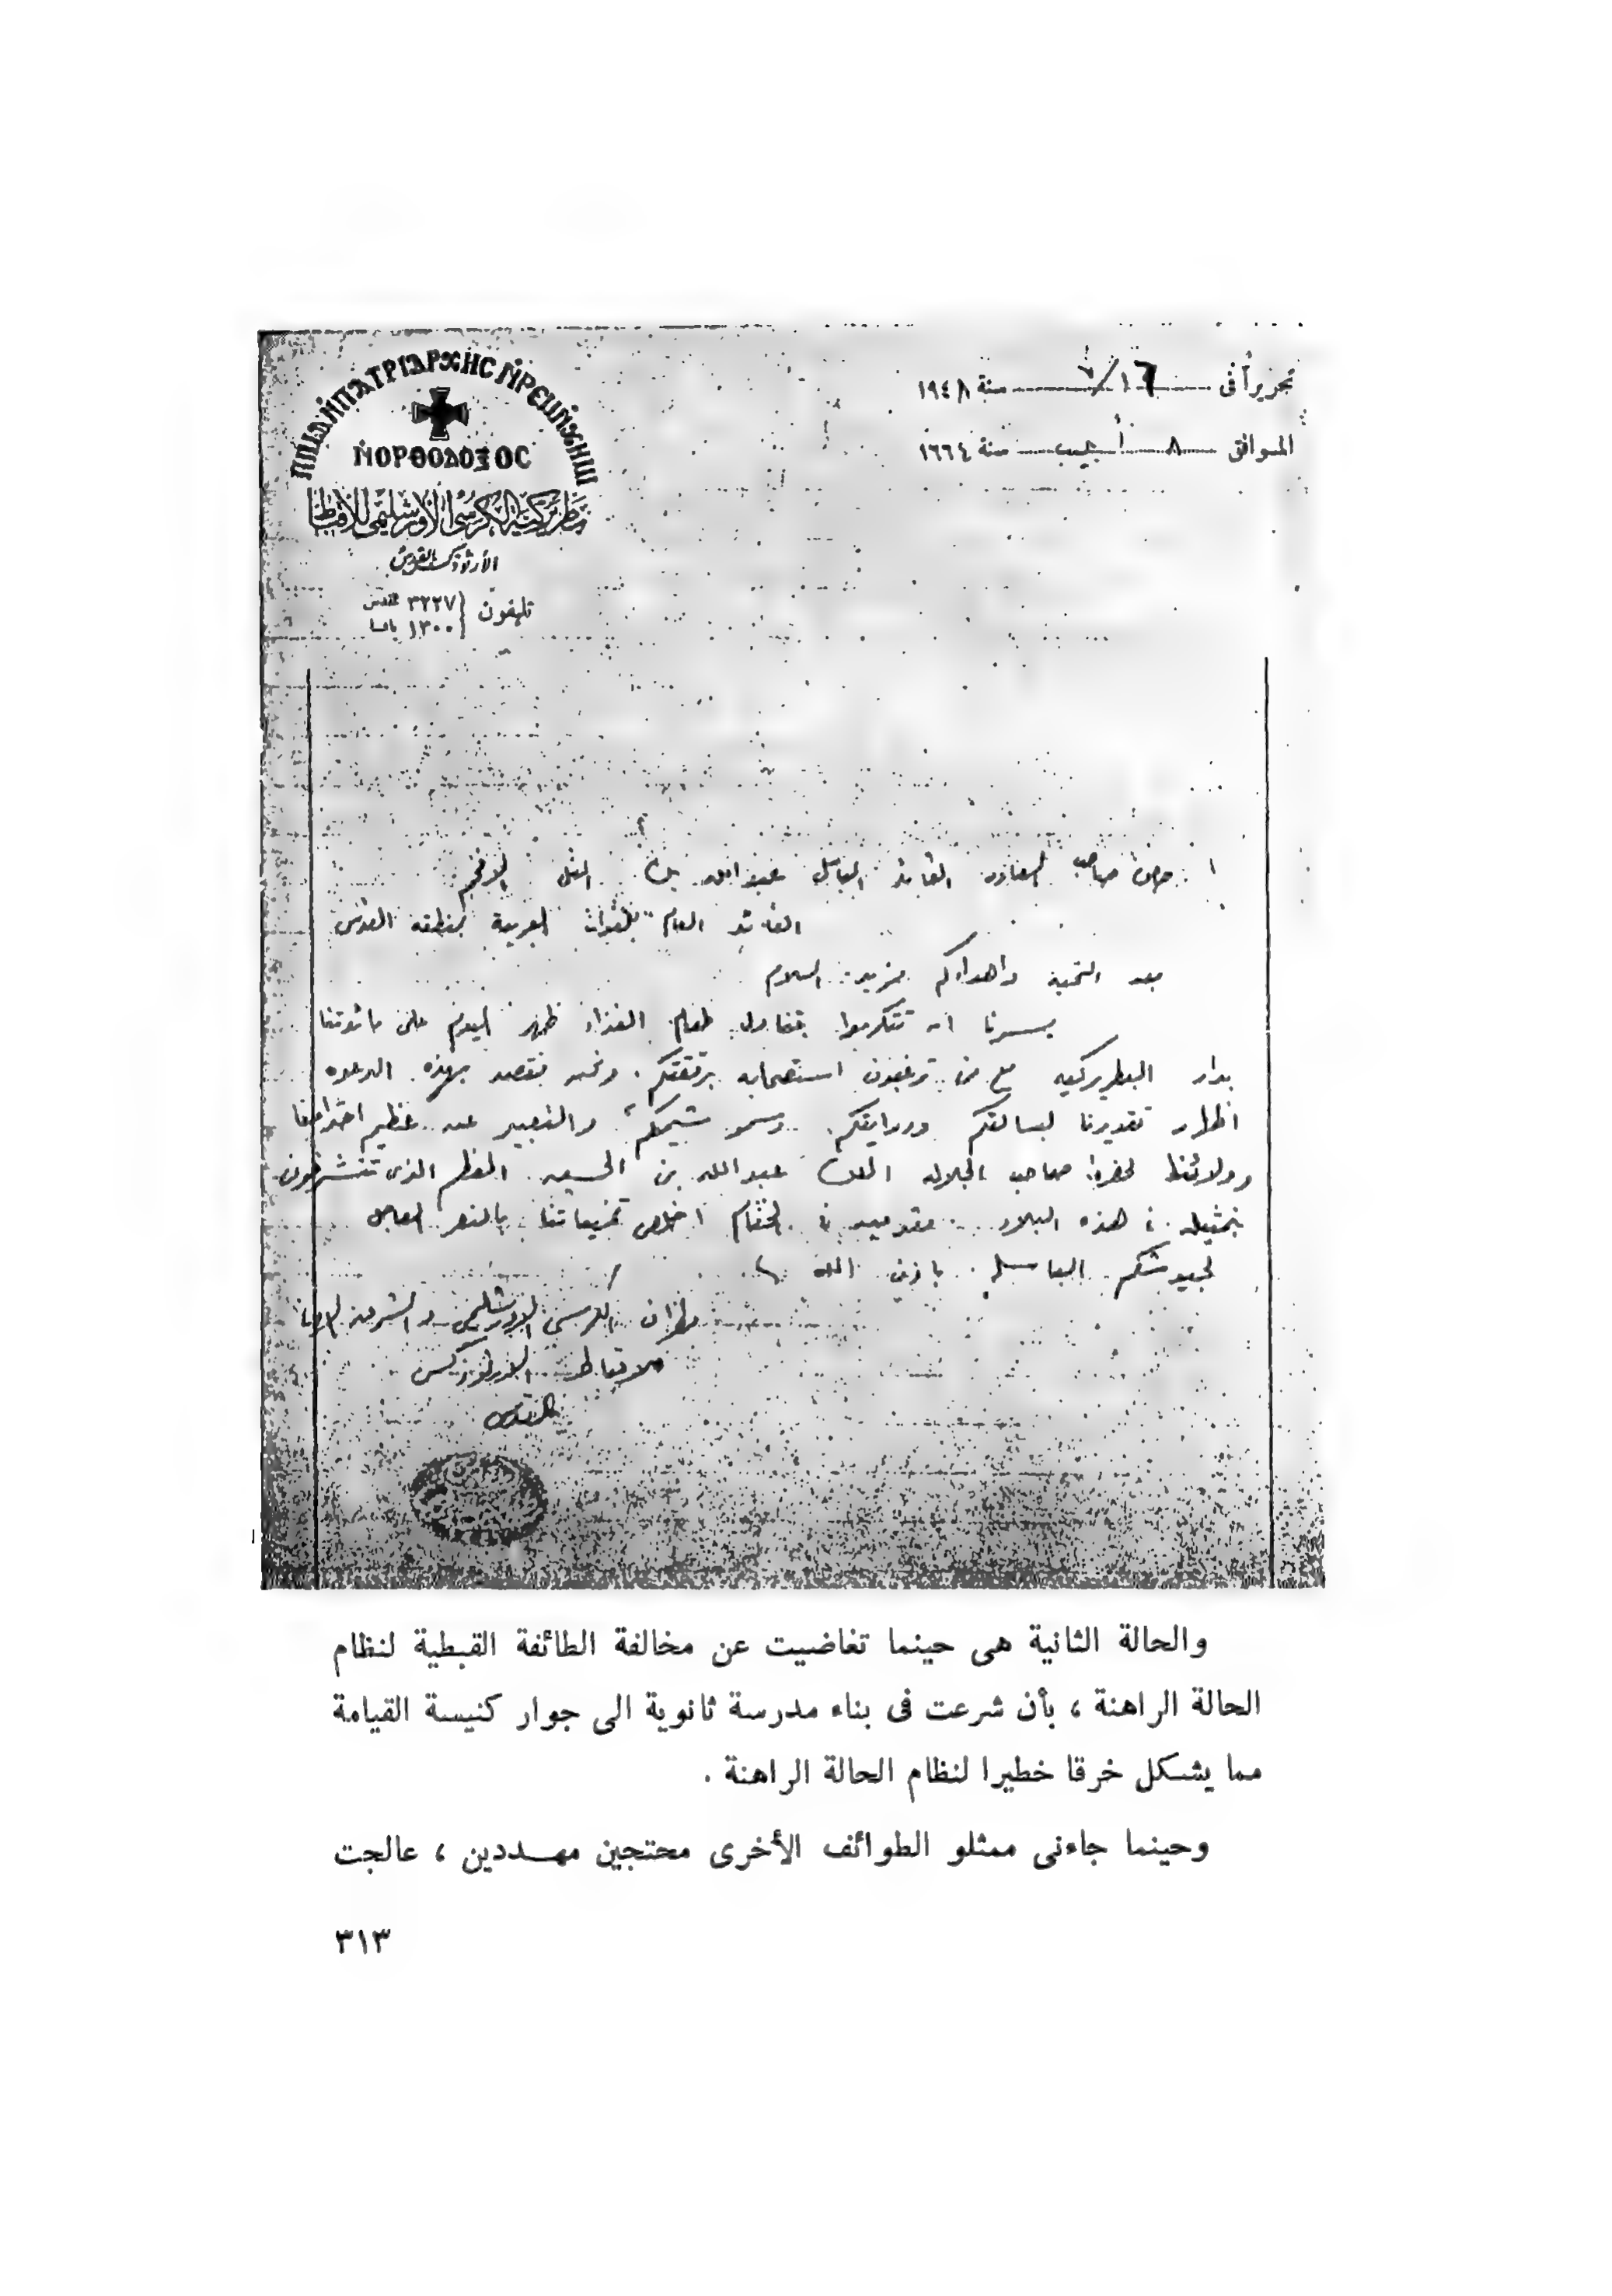 تحريراً فى ١٦/٧ سنة ١٩٤٨
الموافق ٨ أبيب سنة ١٦٦٤
ⲚⲞⲢⲐⲞⲆⲞⲜⲞⲤ
مطرانية الكرسى الأورشليمى للأقباط
الأرثوذكس بالقدس
تليفون ٣٢٢٧ القدس
١٣٠٠ يافا
حضرة صاحب السعادة القائد الباسل عبد الله بك التل الافخم
القائد العام للقوات العربية بمنطقة القدس
بعد التحية واهدائكم مزيد السلام
يسرنا ان تتكرموا بتناول طعام الغذاء ظهر اليوم على مائدتنا
بدار البطريركية مع من ترغبون استصحابه برفقتكم . ونحن نقصد بهذه الدعوة
اظهار تقديرنا لبسالتكم ودرايتكم وسمو شيمكم والتعبير عن عظيم احترامنا
وولائنا لحضرة صاحب الجلالة الملك عبدالله بن الحسين المعظم الذى تتشرفون
بتمثيله فى هذه البلاد مقدمين فى الختام اخلص تمنياتنا بالنصر العاجل
لجيوشكم الباسلة باذن الله
مطران الكرسى الاورشليمى والشرق الادنى
للاقباط الارثوذكس
بالقدس
والحالة الثانية هى حينما تغاضيت عن مخالفة الطائفة القبطية لنظام
الحالة الراهنة ، بأن شرعت فى بناء مدرسة ثانوية الى جوار كنيسة القيامة
مما يشكل خرقا خطيرا لنظام الحالة الراهنة .
وحينما جاءنى ممثلو الطوائف الأخرى محتجين مهـددين ، عالجت
٣١٣